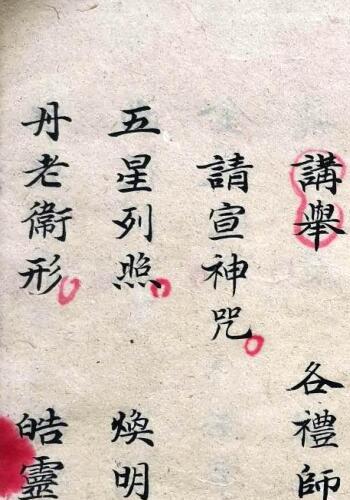 講舉 各禮師
請宣神咒
五星列照 煥明
丹老衞形 皓靈